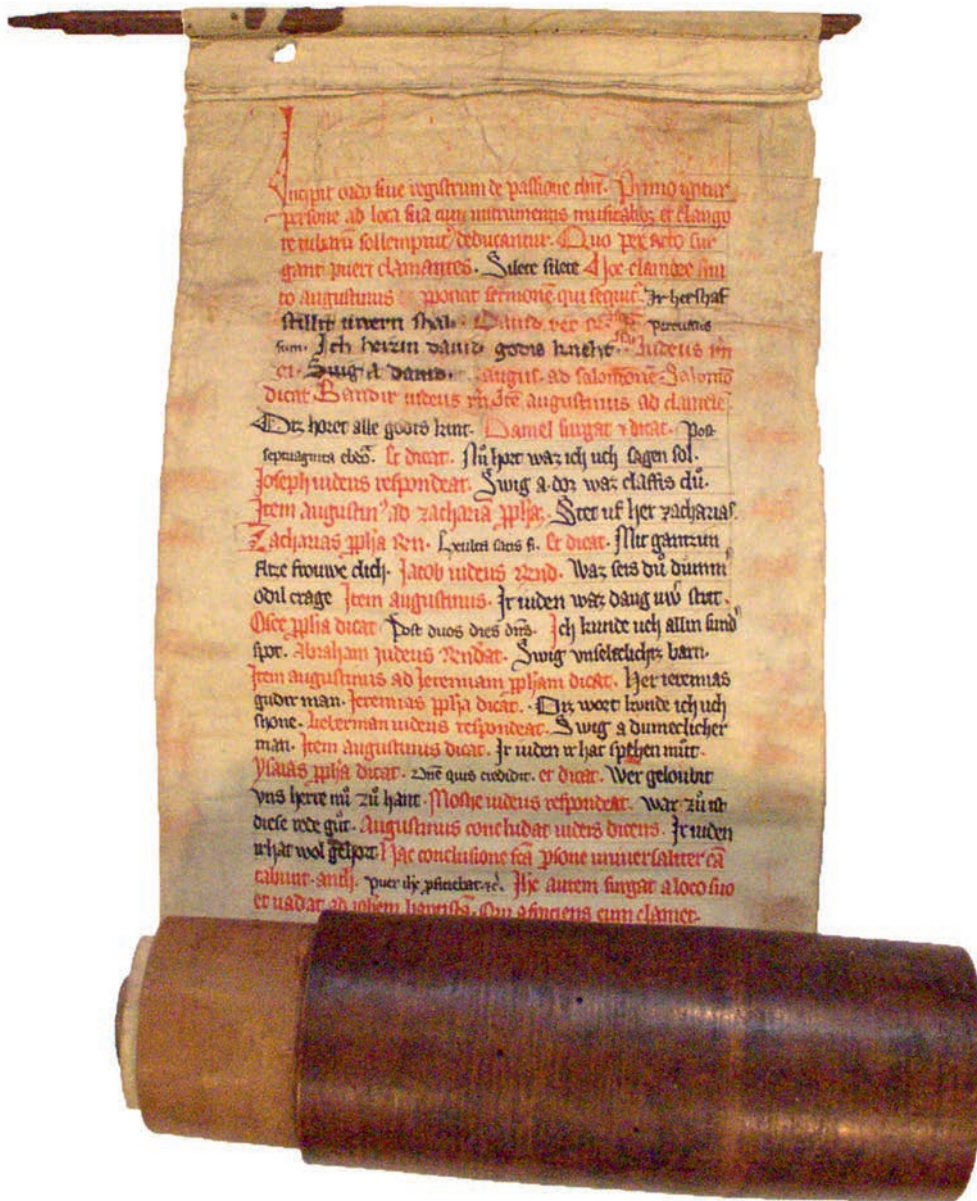 Incipit ordo sive registrum de passione dnī. Primo igitur
persone ad loca sua cum instrumentis musicalibꝫ et clango
re tubarū sollempnit᾽ deducantur. Quo per acto sur
gant pueri clamantes. Silete silete Hoc clamore fini
to augustinus ponat sermonē qui sequit᾽. Ir hershaf
stillit uwern shal. David
sum. Ich heizin david godis kneht. Iudeus
ei. Swig a david. august. ad salomonē. Salomō
dicat Bandir iudeus Itē augustinus ad danielē
Diz horet alle godis kint. Daniel surgat ⁊ dicat. Post
septuaginta ebdō. Et dicat. Nů hort waz ich uch sagen sol.
Joseph iudeus respondeat. Swig a doz waz claffis dů.
Item augustin᾽ ad zachariā ꝓph̄a. Stet uf her zacharias.
Zacharias ꝓph̄a Exulta satis fi. Et dicat. Mit gantzin
flize frouwe dich. Jacob iudeus Waz seis dů dummͥ
odil crage Item augustinus. Ir iuden waz dang uwͥ stat.
Osee ꝓph̄a dicat Post duos dies dn̄s. Ich kunde uch allin sund
spot. Abraham iudeus Swig vnseleclichz barn.
Item augustinus ad Jeremiam ꝓph̄am dicat. Her ieremias
guder man. Jeremias ꝓph̄a dicat. Diz wort kunde ich uch
schone. Lieberman iudeus respondeat. Swig a dumeclicher
man. Item augustinus dicat. Ir iuden ir hat spehen můt.
Ysaias ꝓph̄a dicat. Dn̄e quis credidit. et dicat. Wer geloubit
vns herre nů zů hant. Moshe iudeus respondeat. war zů ist
diese rede gůt. Augustinus concludat iudeis dicens. Ir iuden
ir hat wol gehort. Hac conclusione fc̄a ꝑsone universaliter cā
tabunt. anth. puer ih̄c ꝓficiebat ⁊c̄. Ih̄c autem surgat a loco suo
et vadat ad ioh̄em baptistā. Qui aspiciens eum clamet.